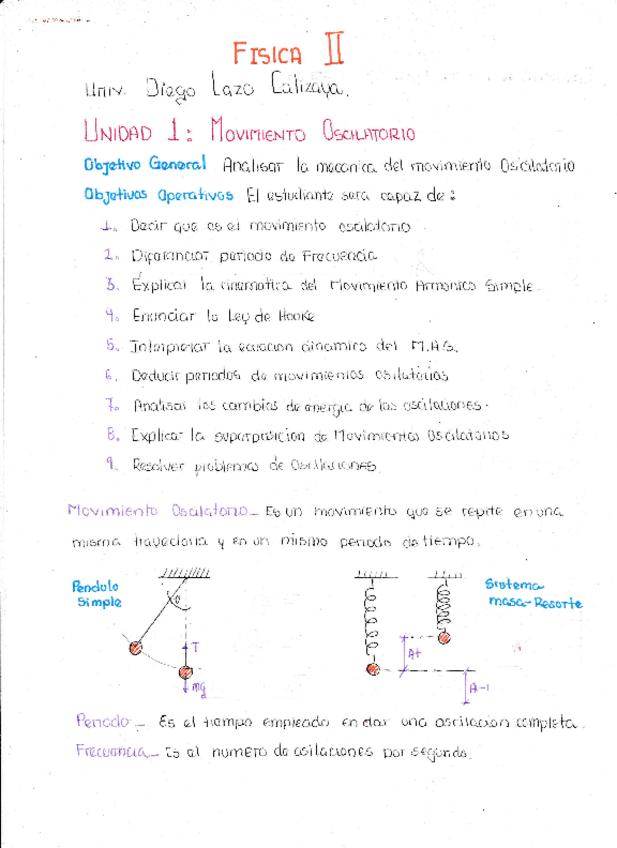 FISICA II
Univ. Diego Lazo Calizaya.
UNIDAD 1: MOVIMIENTO OSCILATORIO
Objetivo General Analisar la mecanica del movimiento Oscilatorio
Objetivos Operativos El estudiante sera capaz de:
1. Decir que es el movimiento oscilatorio
2. Diferenciar periodo de Frecuencia
3. Explicar la cinematica del Movimiento Armonico Simple.
4. Enunciar la Ley de Hooke
5. Interpretar la ecuacion dinamica del M.A.S.
6. Deducir periodos de movimientos osilatorios
7. Analisar los cambios de energia de las oscilaciones.
8. Explicar la superposicion de Movimientos Oscilatorios
9. Resolver problemas de Oscilaciones.
Movimiento Oscilatorio_ Es un movimiento que se repite en una
misma trayectoria y en un mismo periodo de tiempo.
Pendulo
Simple
θ
T
mg
Sistema
masa-Resorte
A+
A-1
Periodo_ Es el tiempo empleado en dar una oscilacion completa.
Frecuencia_ Es el numero de osilaciones por segundo.